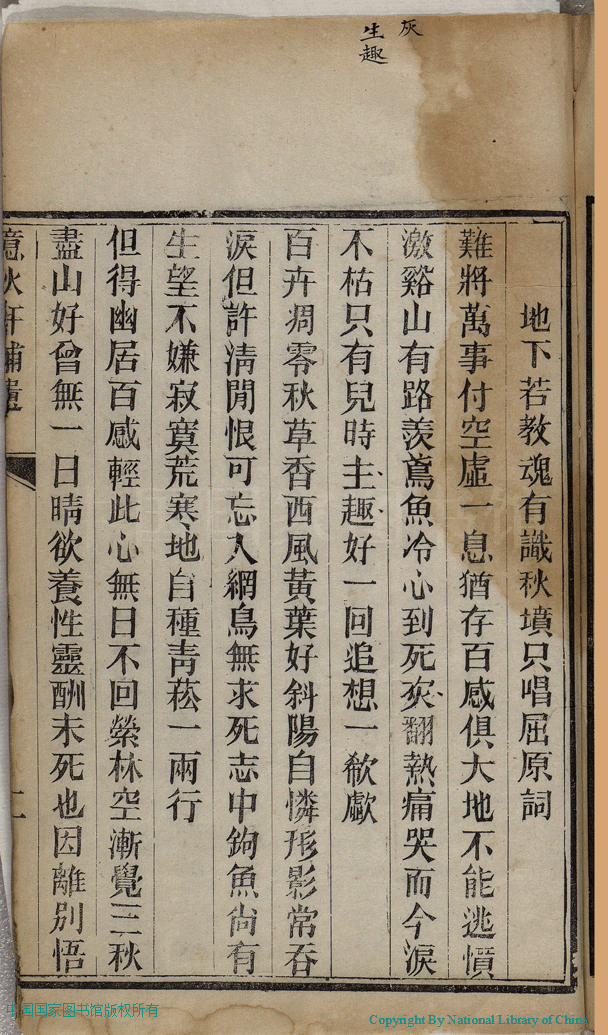 灰
生趣
地下若教魂有識秋墳只唱屈原詞
難將萬事付空虛一息猶存百感俱大地不能逃憤
激谿山有路羨鳶魚冷心到死亥翻熱痛哭而今淚
不枯只有兒時主趣好一回追想一欷歔
百卉凋零秋草香西風黃葉好斜陽自憐形影常吞
淚但許清閒恨可忘入網鳥無求死志中鉤魚尚有
生望不嫌寂寞荒寒地自種青菘一兩行
但得幽居百感輕此心無日不回縈林空漸覺三秋
盡山好曾無一日晴欲養性靈酬未死也因離別悟
憶秋軒補遺
中国国家图书馆版权所有
Copyright By National Library of China